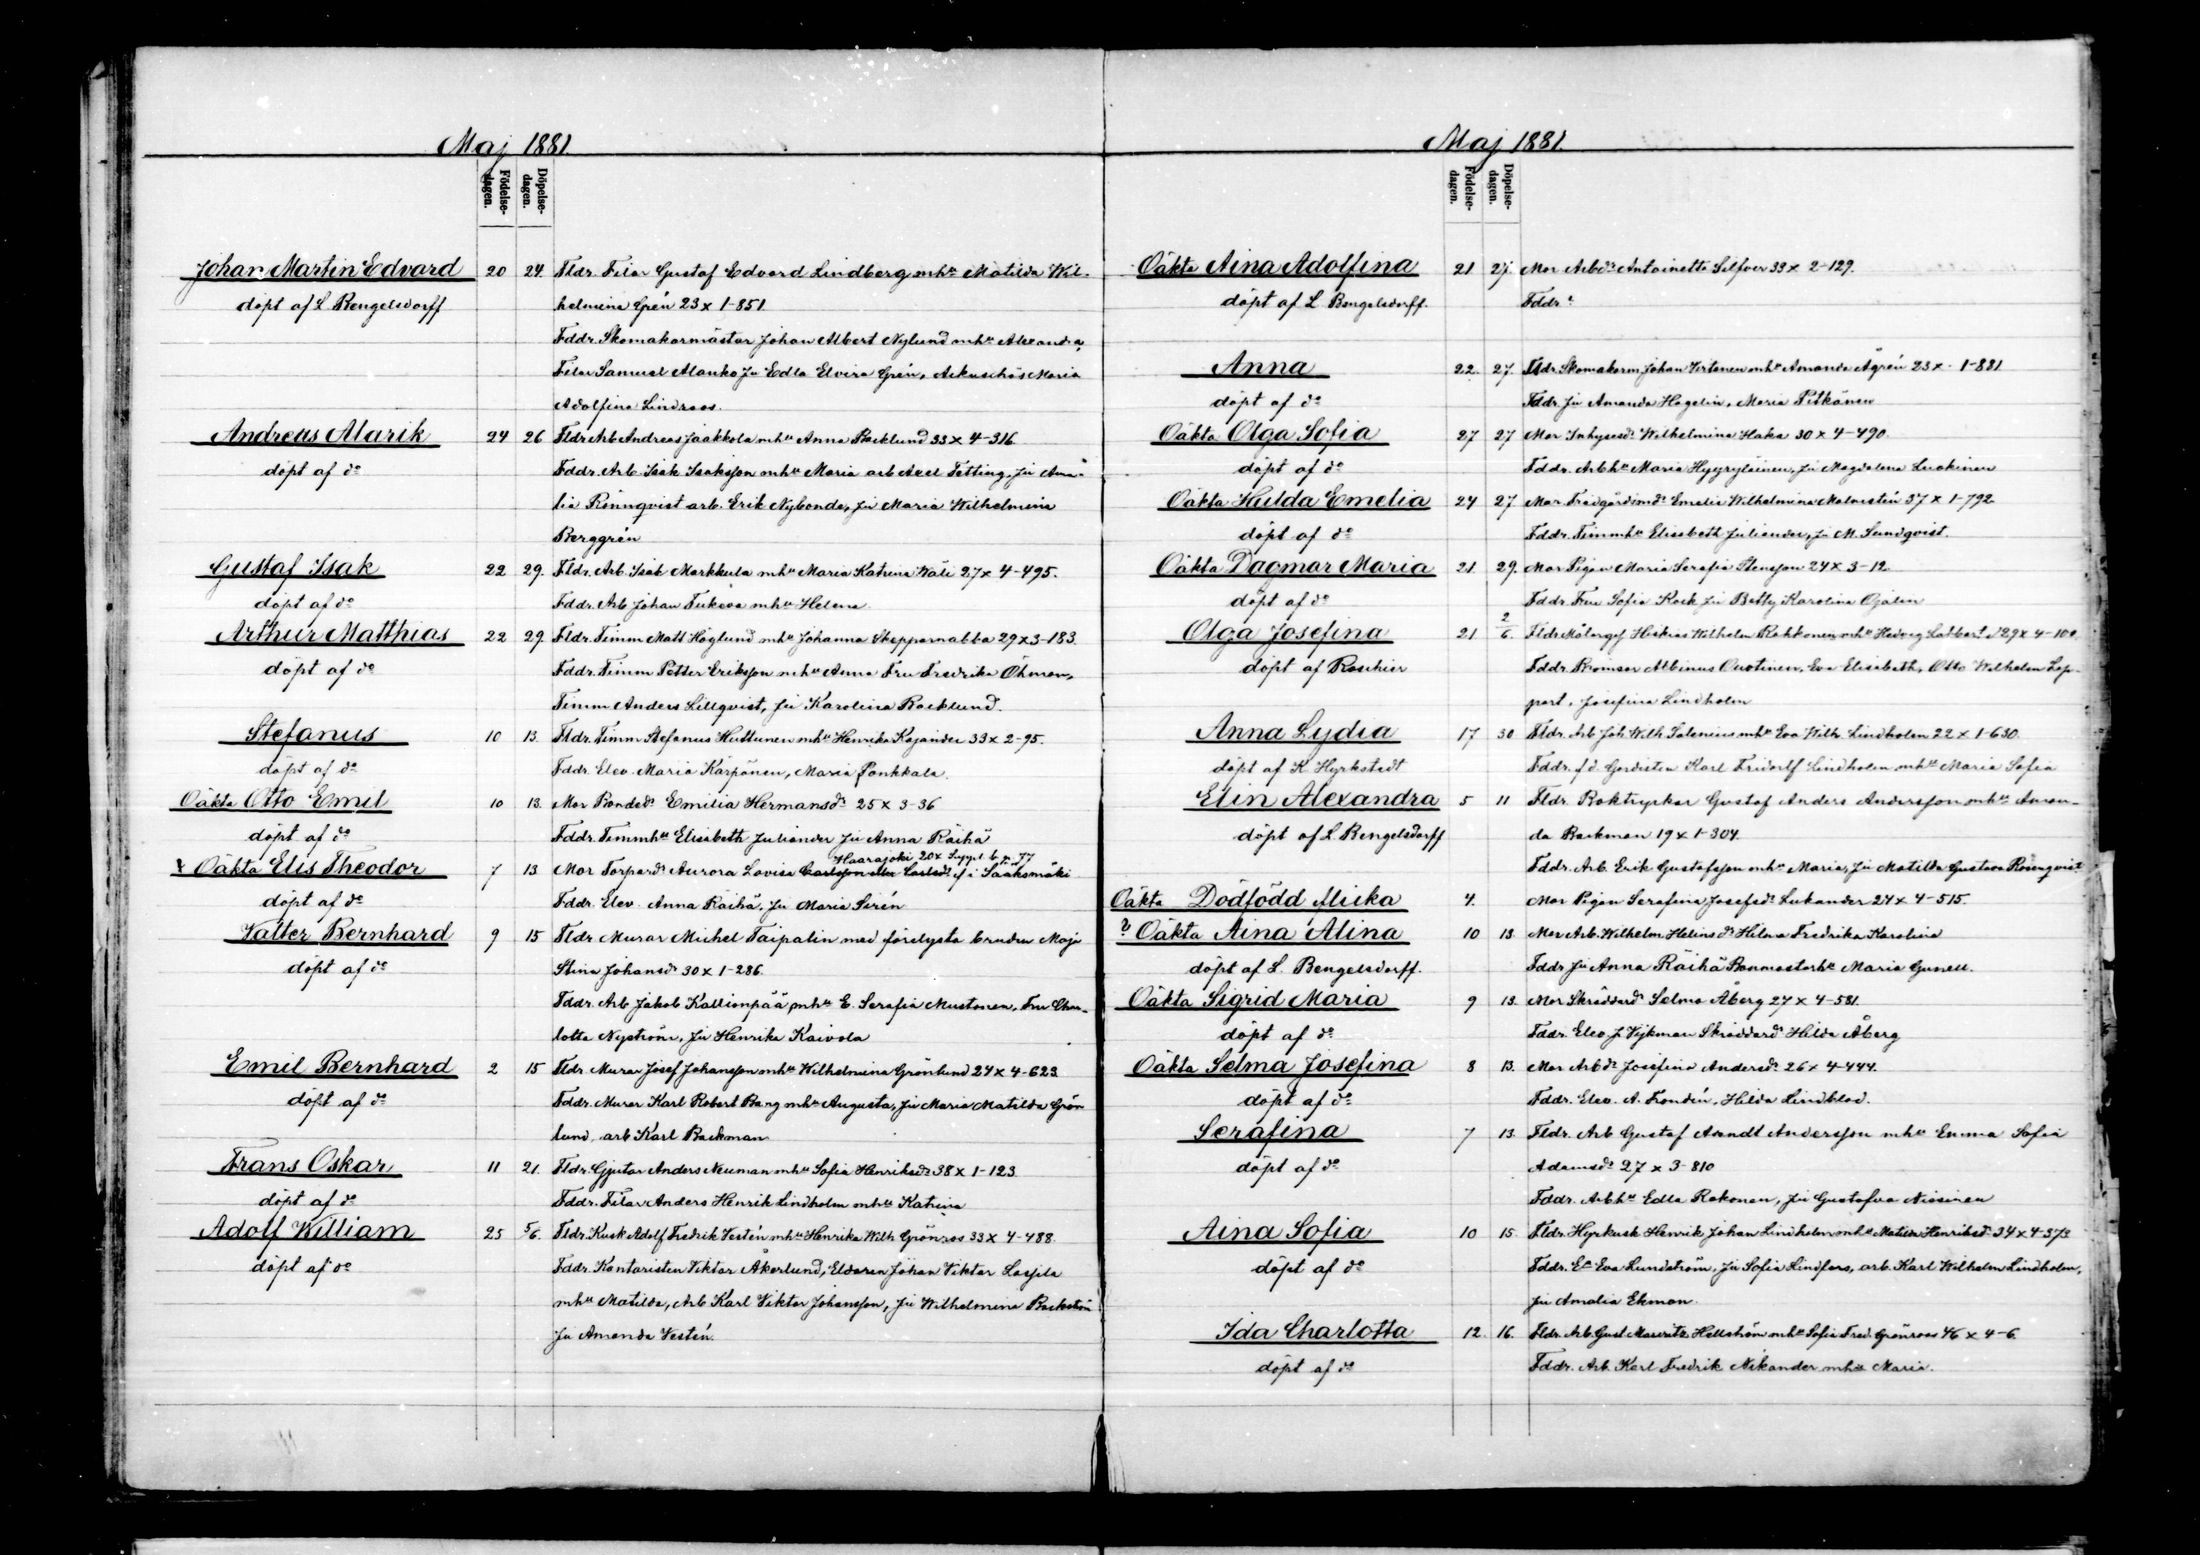 Maj 1881.
Födelse-
dagen.
Döpelse-
dagen.
Johan Martin Edvard 20 24. Fldr. Filar Gustaf Edvard Lindberg mhu Matilda Wil-
döpt af L Bengelsdorff helmina Grén 23 x 1-851.
Fddr. Skomakarmästar Johan Albert Nylund mhu Alexandra,
Filar Samuel Alanko Ju Edla Elvira Grén, Maria
Adolfina Lindroos.
Andreas Alarik 24 26 Fldr. Arb Andreas Jaakkola mhu Anna Backlund 33 x 4-316
döpt af do Fddr. Arb. Isak Isaksson mhu Maria arb Axel Tetting, Ju Ama-
lia Rönnqvist arb. Erik Nybonde, Ju Maria Wilhelmina
Berggrén
Gustaf Isak 22 29. Fldr. Arb. Isak Markkula mhu Maria Katrina Wäli 27 x 4-495.
döpt af do Fddr. Arb Johan Tukeva mhu Helena
Arthur Matthias 22 29. Fldr. Timm Matt Höglund mhu Johanna Skepparnabba 29 x 3-183.
döpt af do Fddr. Timm Petter Eriksson mhu Anna Fru Fredrika Öhman,
Timm Anders Lillqvist, Ju Karolina Backlund.
Stefanus 10 13. Fldr. Timm Stefanus Huttunen mhu Henrika Kajander 33 x 2-95.
döpt af do Fddr. Elev. Maria Karpänen, Maria Ponkkala.
Oäkta Otto Emil 10 13. Mor Bonded: Emilia Hermansd: 25 x 3-36
döpt af do Fddr. Timmhu Elisabeth Juliander Ju Anna Räihä
Haarajoki 20 x Suppl b p 77
x Oäkta Elis Theodor 7 13 Mor Torpard: Aurora Lovisa Carlsson eller Carlsd: i Sääksmäki
döpt af do Fddr. Elev. Anna Räihä, Ju Maria Sirén
Valter Bernhard 9 15 Fldr. Murar Michel Taipalin med förelysta bruden Maja
döpt af do Stina Johansd: 30 x 1-286.
Fddr. Arb Jakob Kallionpää mhu E. Serafia Mustonen, Fru Char-
lotta Nyström, Ju Henrika Kaivola
Emil Bernhard 2 15 Fldr. Murar Josef Johansson mhu Wilhelmina Grönlund 24 x 4-623.
döpt af do Fddr. Murar Karl Robert Bang mhu Augusta, Ju Maria Matilda Grön
lund, arb Karl Backman
Frans Oskar 11 21. Fldr. Gjutar Anders Neuman mhu Sofia Henriksd: 38 x 1-123.
döpt af do Fddr. Filar Anders Henrik Lindholm mhu Katrina
Adolf William 25 5/6. Fldr. Kusk Adolf Fredrik Vestén mhu Henrika Wilh Grönroos 33 x 4-488.
döpt af do Fddr. Kontoristen Viktor Åkerlund, Eldaren Johan Viktor Laspila
mhu Matilda, Arb Karl Viktor Johansson, Ju Wilhelmina Backström
Ju Amanda Vestén.
Maj 1881.
Födelse-
dagen.
Döpelse-
dagen.
Oäkta Aina Adolfina 21 27. Mor Arbd: Antoinetta Silfver 33 x 2-129.
döpt af L Bengelsdorff. Fddr:
Anna 22. 27. Fldr. Skomakarm Johan Virtanen mhu Amanda Ågrén 23 x 1-881
döpt af do Fddr. Ju Amanda Hagelin, Maria Pitkänen
Oäkta Olga Sofia 27 27 Mor Inhysesd: Wilhelmina Haka 30 x 4-490.
döpt af do Fddr. Arbhu Maria Hyyryläinen, Ju Magdalena Luokinen
Oäkta Hulda Emelia 24 27 Mor Trädgårdsmd: Emelia Wilhelmina Malmstén 37 x 1-792
döpt af do Fddr. Timmhu Elisabeth Juliander, Ju M. Sundqvist.
Oäkta Dagmar Maria 21 29. Mor Pigan Maria Serafia Stensson 24 x 3-12
döpt af do Fddr. Fru Sofia Kock Ju Betty Karolina Ojalin
Olga Josefina 21 2/6. Fldr. Målargs Hiskias Wilhelm Rahkonen mhu Hedvig 29 x 4-100
döpt af Roschier Fddr. Bromsar Albinus Quotinen, Eva Elisabeth, Otto Wilhelm Lep-
pert, Josefina Lindholm
Anna Lydia 17 30 Fldr. Arb Joh Wilh Salenius mhu Eva Wilh. Lindholm 22 x 1-630.
döpt af K Hyrkstedt Fddr. f. d. Gardisten Karl Fridolf Lindholm mhu Maria Sofia
Elin Alexandra 5 11 Fldr. Boktryckar Gustaf Anders Andersson mhu Aman-
döpt af L. Bengelsdorff da Backman 19 x 1-304.
Fddr. Arb. Erik Gustafsson mhu Maria, Ju Matilda Gustava Rönnqvist
Oäkta Dödfödd flicka 4. Mor Pigan Serafina Josefsd: Lukander 24 x 4-515.
? Oäkta Aina Alina 10 13. Mor Arb. Wilhelm Helins d: Hilma Fredrika Karolina
döpt af L. Bengelsdorff. Fddr Ju Anna Räihä Banmastarhu Maria Gunell.
Oäkta Sigrid Maria 9 13. Mor Skräddard: Selma Åberg 27 x 4-581.
döpt af do Fddr. Elev J. Vijkman Skräddard: Hilda Åberg
Oäkta Selma Josefina 8 13. Mor Arbd: Josefina Andersd: 26 x 4-444.
döpt af do Fddr. Elev. A. Frondén, Hilda Lindblad.
Serafina 7 13. Fldr. Arb Gustaf Arndt Andersson mhu Emma Sofia
döpt af do Adamsd: 27 x 3-810
Fddr. Arbhu Edla Rekonen, Ju Gustafva Niosinen
Aina Sofia 10 15. Fldr. Hyrkusk Henrik Johan Lindholm mhu Matilda Henriksd: 34 x 4-373
döpt af do Fddr. Ea Eva Lundström, Ju Sofia Lindfors, arb. Karl Wilhelm Lindholm,
Ju Amalia Ekman.
Ida Charlotta 12. 16. Fldr. Arb. Gust Mauritz Hellström mhu Sofia Fred. Grönroos 46 x 4-6.
döpt af do Fddr. Arb. Karl Fredrik Nikander mhu Maria.